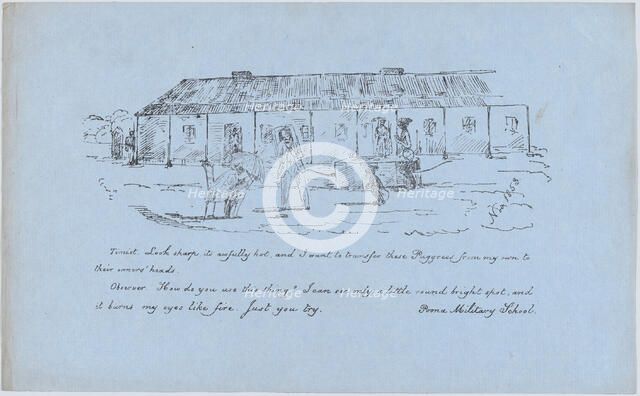 Nov 1868
Timist. Look sharp, its awfully hot, and I want to transfer these Puggrees from my own to
their owners' heads.
Observer. How do you use this thing? I can see only a little round bright spot, and
it burns my eyes like fire. Just you try. Poona Military School.
Heritage
Heritage
Heritage
Heritage
Heritage
Heritage
Heritage
Heritage